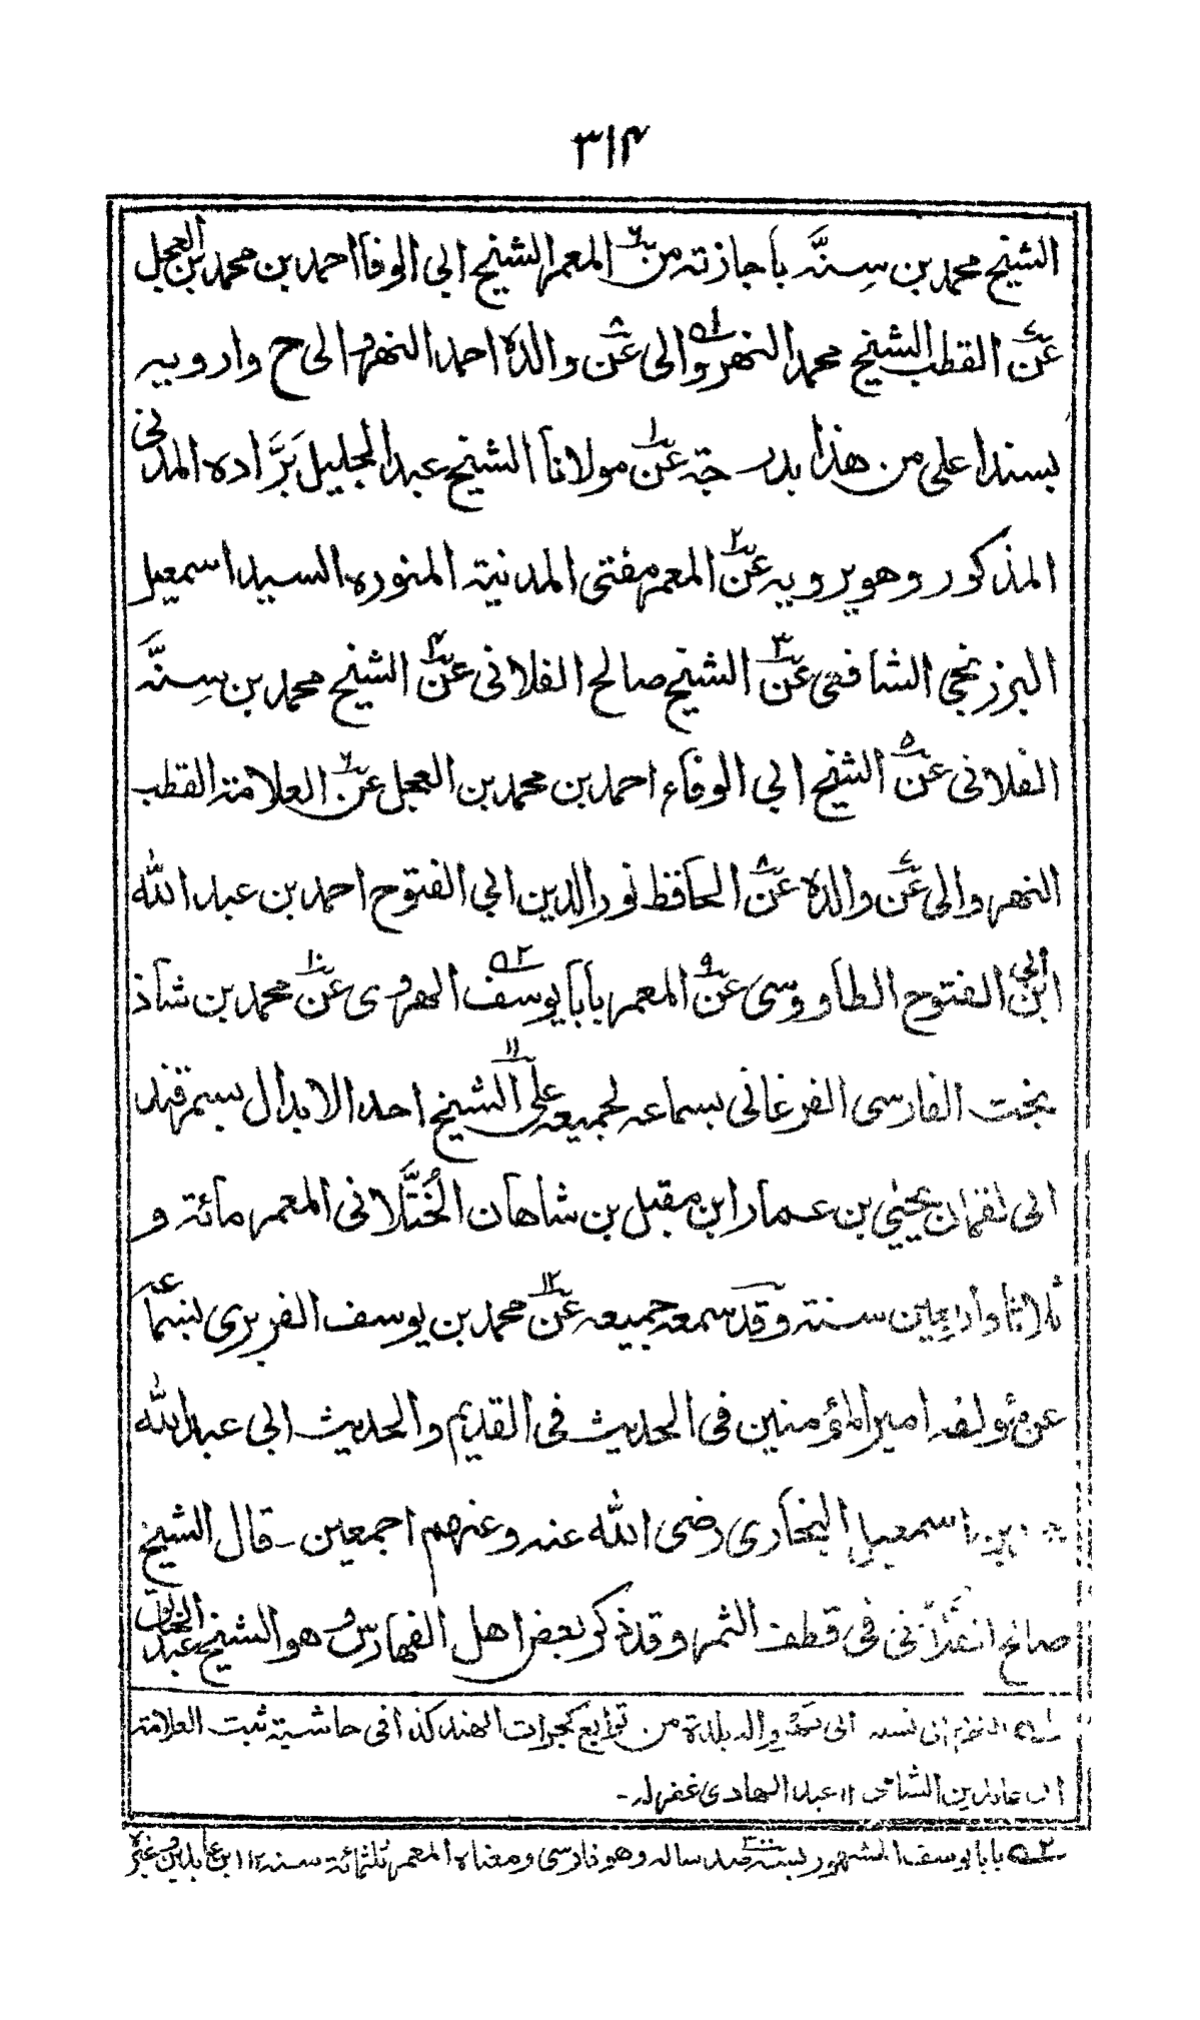 ٣١٤
الشيخ محمد بن سِنَّه باجازته من ٦ المعمر الشيخ ابى الوفا احمد بن محمد بن العجل
عن ٧ القطب الشيخ محمد النهروالى ١ عن ٨ والده احمد النهروالى ح وارويه
بسند اعلى من هذا بدرجة عن ١ مولانا الشيخ عبد الجليل بَرَّاده المدنى
المذكور وهو يرويه عن ٢ المعمر مفتى المدينة المنوره السيد اسمعيل
البرزنجى الشافعى عن ٣ الشيخ صالح الفلانى عن ٤ الشيخ محمد بن سِنَّه
الفلانى عن ٥ الشيخ ابى الوفاء احمد بن محمد بن العجل عن ٦ العلامة القطب
النهروالى عن ٧ والده عن ٨ الحافظ نور الدين ابى الفتوح احمد بن عبد الله
ابن ابى الفتوح الطاووسى عن ٩ المعمر بابا يوسف ٢ الهروى عن ١٠ محمد بن شاذ
بخت الفارسى الفرغانى بسماعه لجميعه على ١١ الشيخ احد الابدال بسمرقند
ابى لقمان يحيٰي بن عمار ابن مقبل بن شاهان الخُتَّلانى المعمر مائة و
ثلاثا واربعين سنة وقد سمعه جميعه عن ١٢ محمد بن يوسف الفربرى بسماعه
عن مؤلفه امير المؤمنين فى الحديث فى القديم والحديث ابى عبد الله
بن اسمعيل البخارى رضى الله عنه وعنهم اجمعين ـ قال الشيخ
صالح الفلانى فى قطف الثمر وقد ذكر بعض اهل الفهارس وهو الشيخ عبد الخالق
١ه الى بلدة من توابع كجرات الهند كذا فى حاشية ثبت العلامة
ابن عابدين الشامى ١١ عبد الهادى غفر له ـ
٢ه بابا يوسف المشهور بسه صد ساله وهو فارسى ومعناه المعمر ثلثمائة سنة ١٢ ابن عابدين وغيره